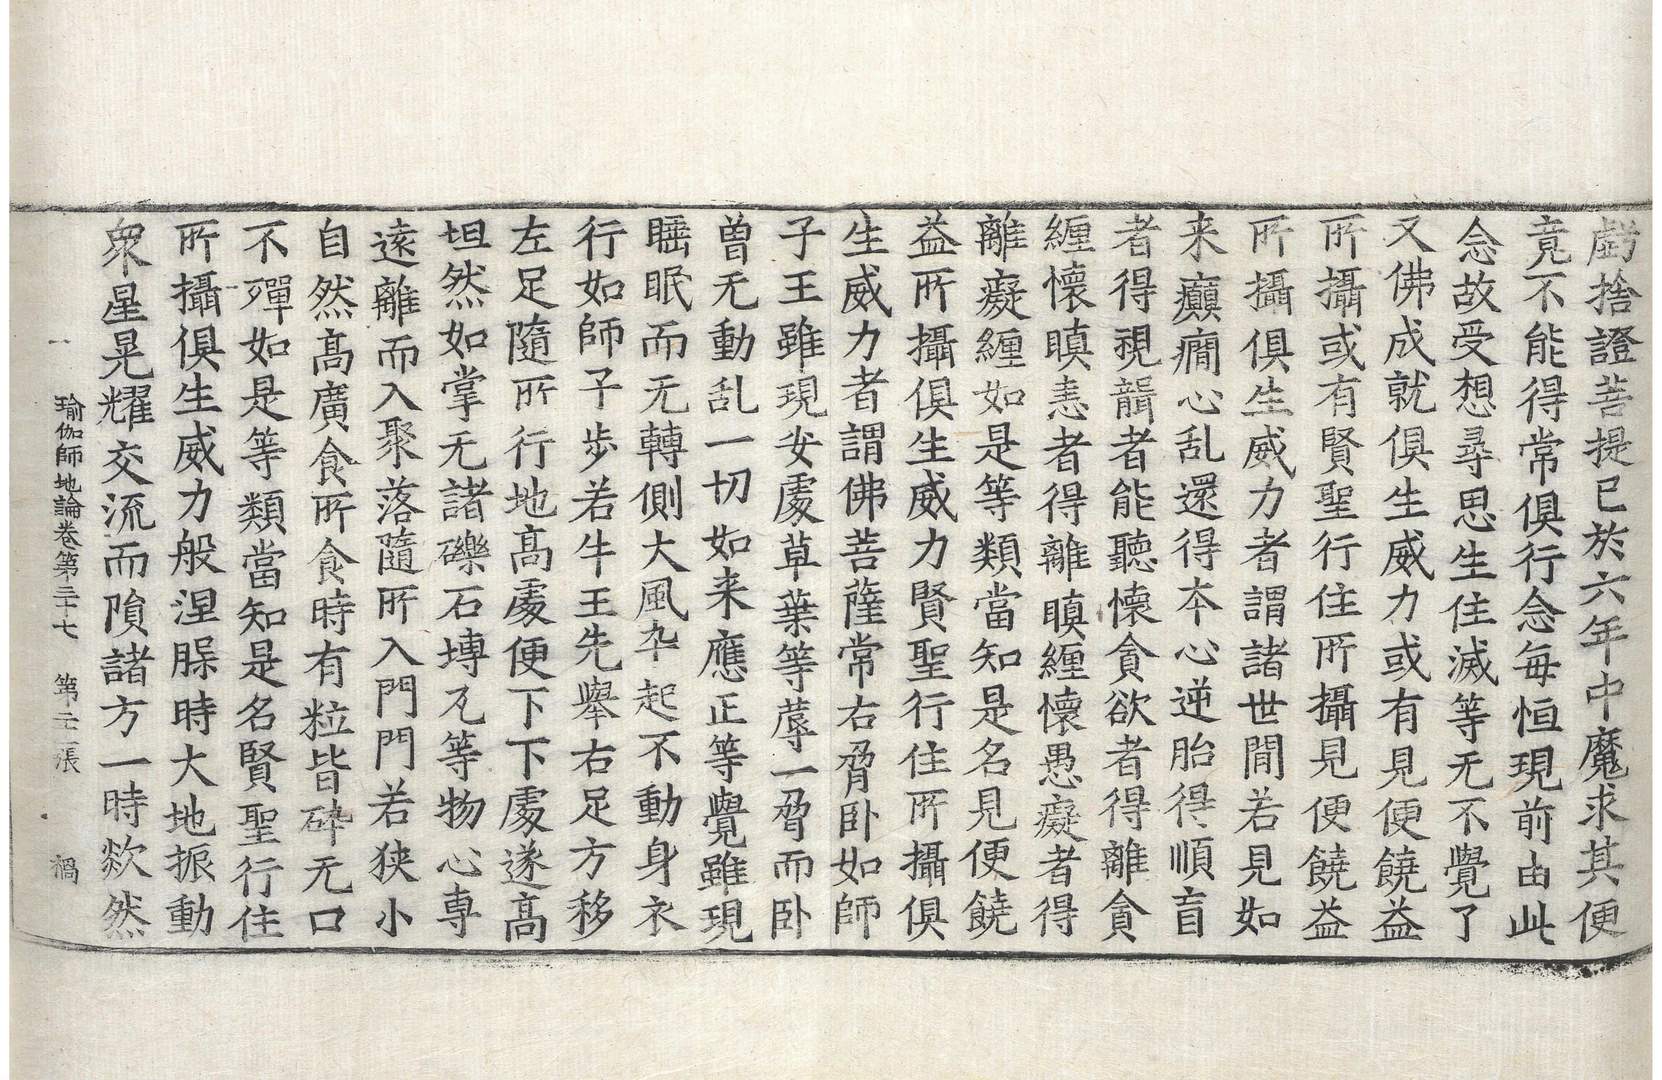 戲捨證菩提已於六年中魔求其便
竟不能得常俱行念每恒現前由此
念故受想尋思生住滅等无不覺了
又佛成就俱生威力或有見便饒益
所攝或有賢聖行住所攝見便饒益
所攝俱生威力者謂諸世間若見如
来癲癇心乱還得本心逆胎得順盲
者得視聾者能聽懷貪欲者得離貪
纏懷瞋恚者得離瞋纏懷愚癡者得
離癡纏如是等類當知是名見便饒
益所攝俱生威力賢聖行住所攝俱
生威力者謂佛菩薩常右脅卧如師
子王雖現安處草葉等蓐一脅而卧
曾无動乱一切如来應正等覺雖現
睡眠而无轉側大風卒起不動身衣
行如師子步若牛王先舉右足方移
左足隨所行地高處便下下處遂高
坦然如掌无諸礫石塼瓦等物心専
遠離而入聚落隨所入門門若狹小
自然高廣食所食時有粒皆碎无口
不彈如是等類當知是名賢聖行住
所攝俱生威力般涅槃時大地振動
衆星晃耀交流而隕諸方一時欻然
瑜伽師地論卷第三十七　第二張